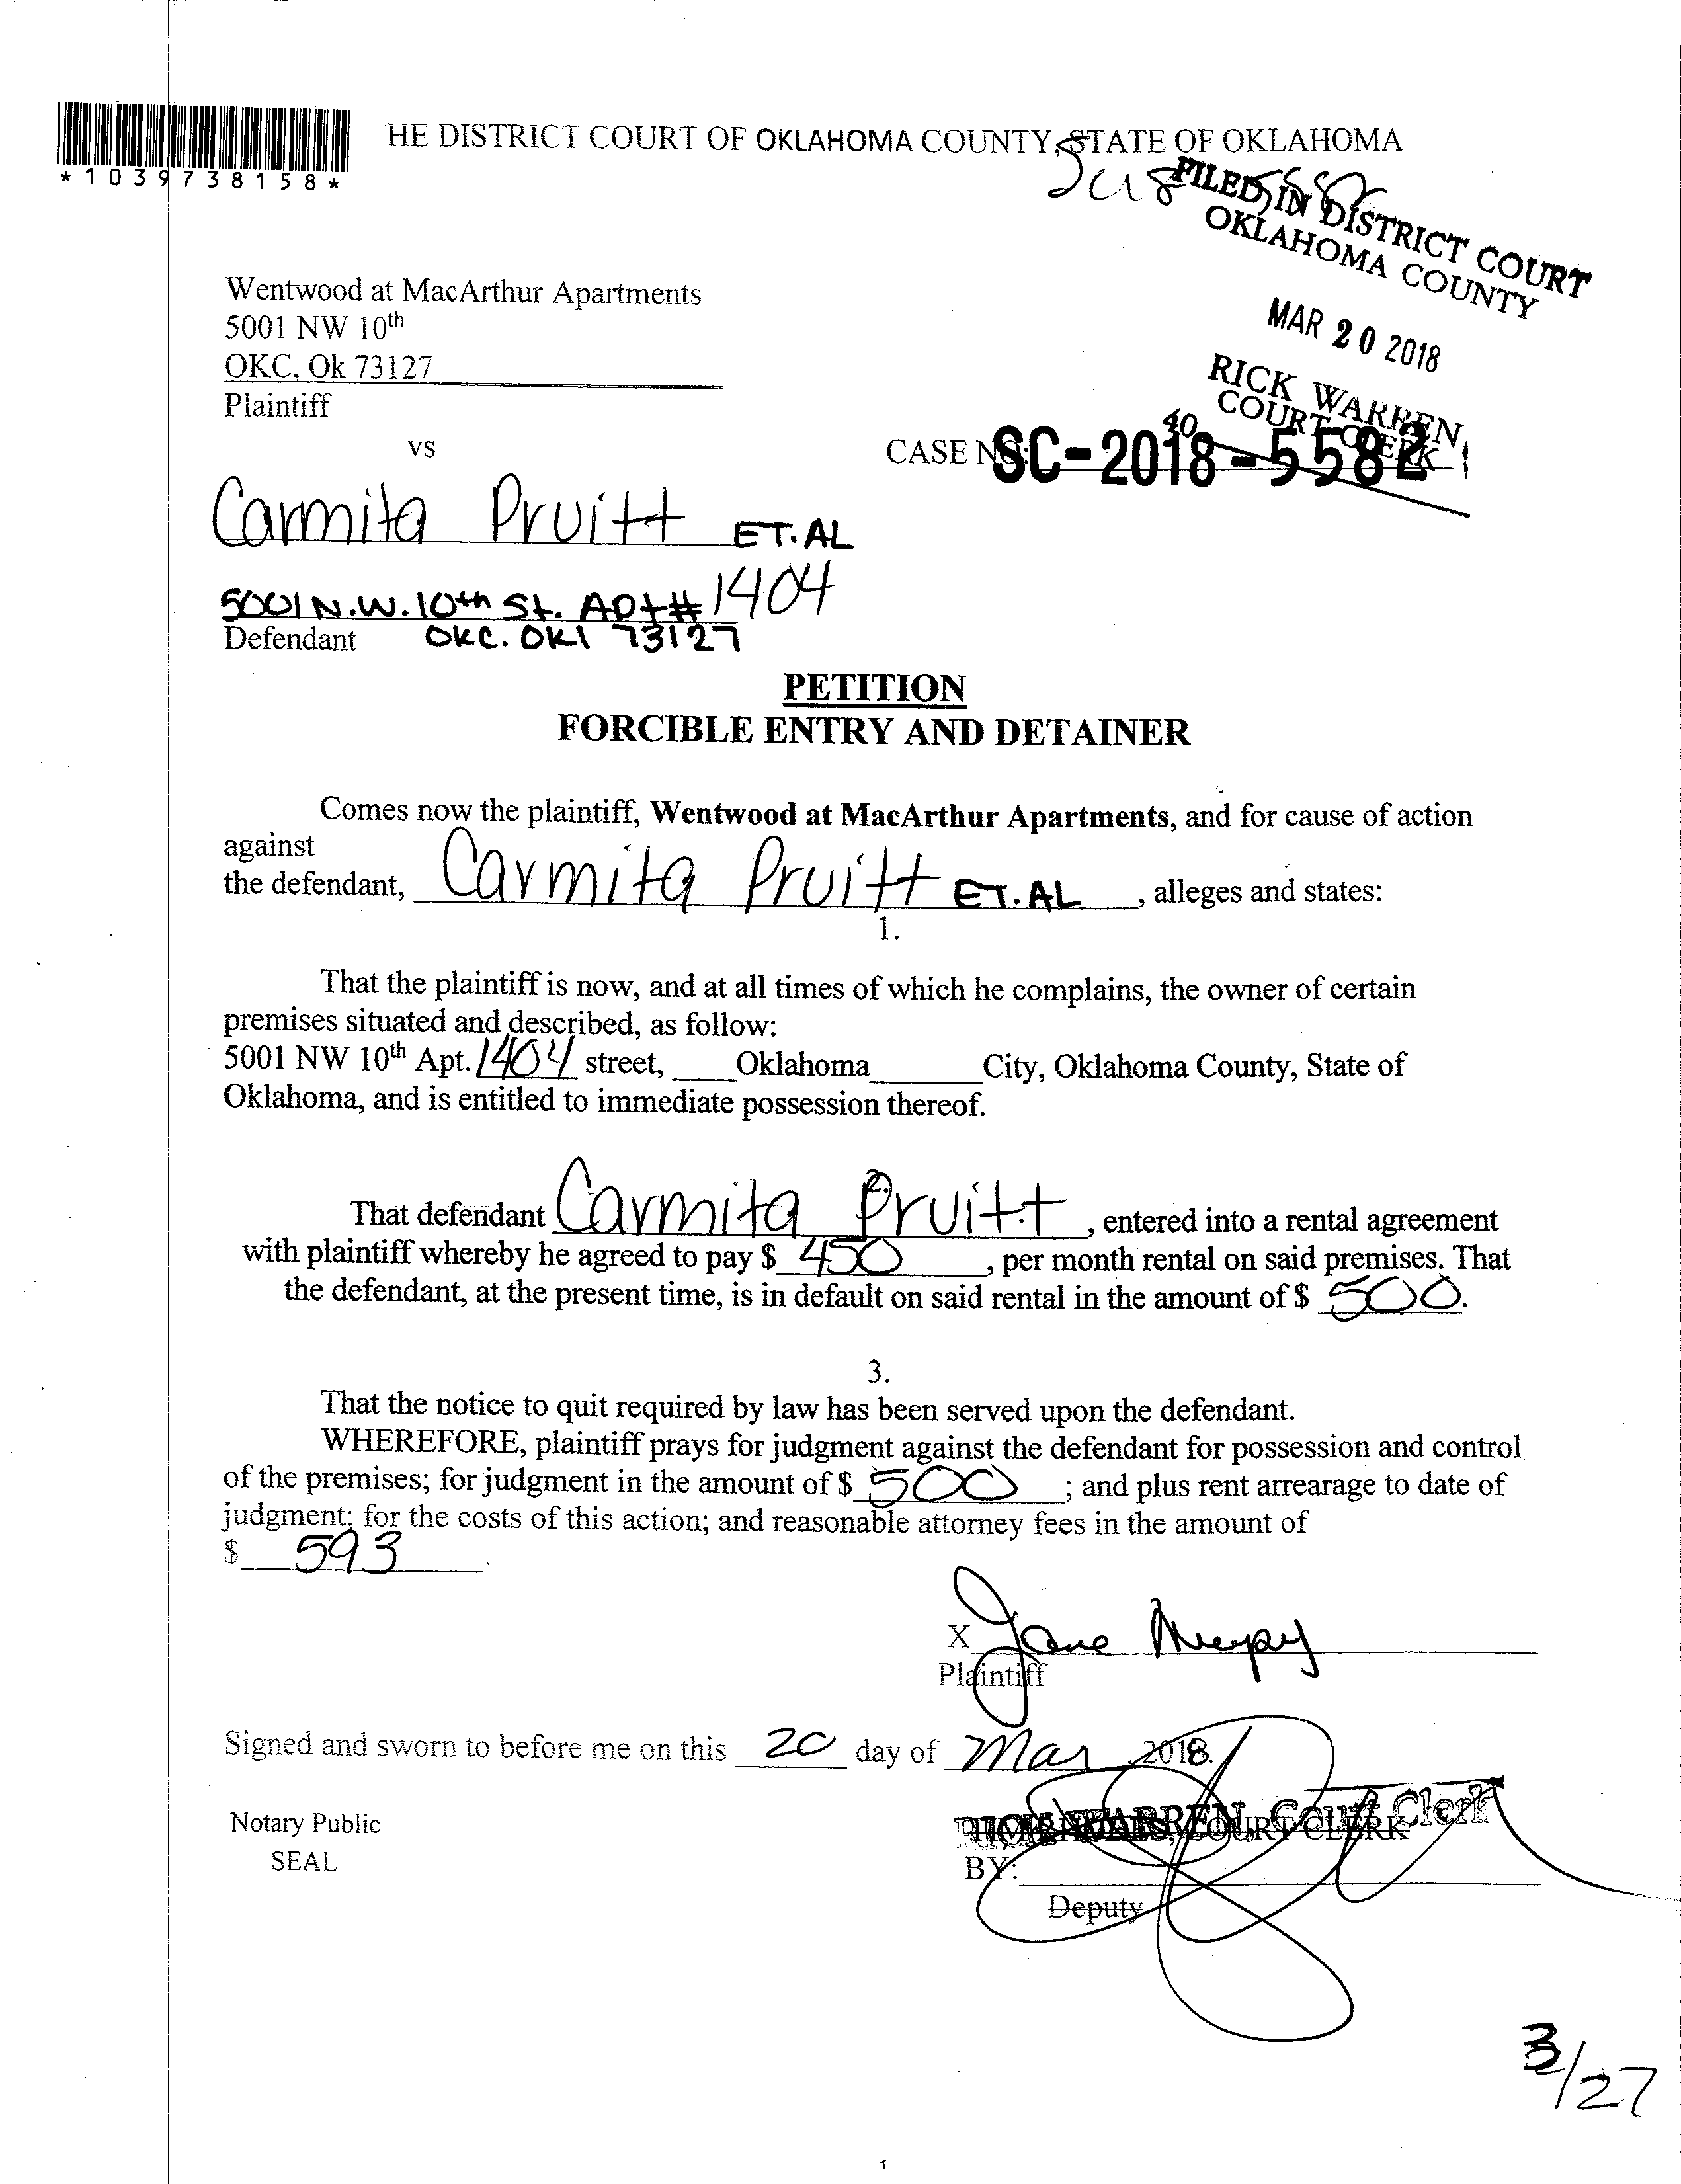 HE DISTRICT COURT OF OKLAHOMA COUNTY, STATE OF OKLAHOMA
*1039738158*
FILED IN DISTRICT COURT
OKLAHOMA COUNTY
MAR 20 2018
RICK WARREN
COURT CLERK
40
Wentwood at MacArthur Apartments
5001 NW 10th
OKC, Ok 73127
Plaintiff
vs
CASE NO: SC-2018-5582
Carmita Pruitt ET.AL
5001 N.W. 10th St. Apt# 1404
Defendant OKC. OKl 73127
PETITION
FORCIBLE ENTRY AND DETAINER
Comes now the plaintiff, Wentwood at MacArthur Apartments, and for cause of action
against
the defendant, Carmita Pruitt ET.AL, alleges and states:
1.
That the plaintiff is now, and at all times of which he complains, the owner of certain
premises situated and described, as follow:
5001 NW 10th Apt. 1404 street, Oklahoma City, Oklahoma County, State of
Oklahoma, and is entitled to immediate possession thereof.
2.
That defendant Carmita Pruitt, entered into a rental agreement
with plaintiff whereby he agreed to pay $ 450, per month rental on said premises. That
the defendant, at the present time, is in default on said rental in the amount of $ 500.
3.
That the notice to quit required by law has been served upon the defendant.
WHEREFORE, plaintiff prays for judgment against the defendant for possession and control
of the premises; for judgment in the amount of $ 500; and plus rent arrearage to date of
judgment; for the costs of this action; and reasonable attorney fees in the amount of
$ 593.
X Jane
Plaintiff
Signed and sworn to before me on this 20 day of Mar, 2018.
Notary Public
SEAL
RICK WARREN, Court Clerk
COURT CLERK
BY:
Deputy
3/27